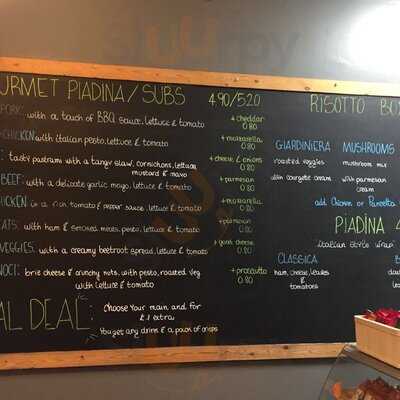 URMET PIADINA/SUBS 4.90/5.20
PORK: with a touch of BBQ sauce, lettuce & tomato + cheddar 0.80
CHICKEN with italian pesto, lettuce & tomato + mozzarella 0.80
: tasty pastrami with a tangy slaw, cornichons, lettuce mustard & mayo + cheese & onions 0.80
BEEF: with a delicate garlic mayo, lettuce & tomato + parmesan 0.80
CHICKEN in a rich tomato & pepper sauce, lettuce & tomato + mozzarella 0.80
EATS: with ham & smoked meats, pesto, lettuce & tomato + parmesan 0.80
VEGGIES: with a creamy beetroot spread, lettuce & tomato + goat cheese 0.80
NOCI: brie cheese & crunchy nuts, with pesto, roasted veg + prosciutto 0.80
with lettuce & tomato
AL DEAL: Choose your main and for
£1 extra
You get any drink & a pack of crisps
RISOTTO BOX
GIARDINIERA
roasted veggies
with courgette cream
MUSHROOMS
mushroom mix
with parmesan
cream
add Chicken or Pancetta
PIADINA 4
italian style wrap
CLASSICA
ham, cheese, leaves
&
tomatoes